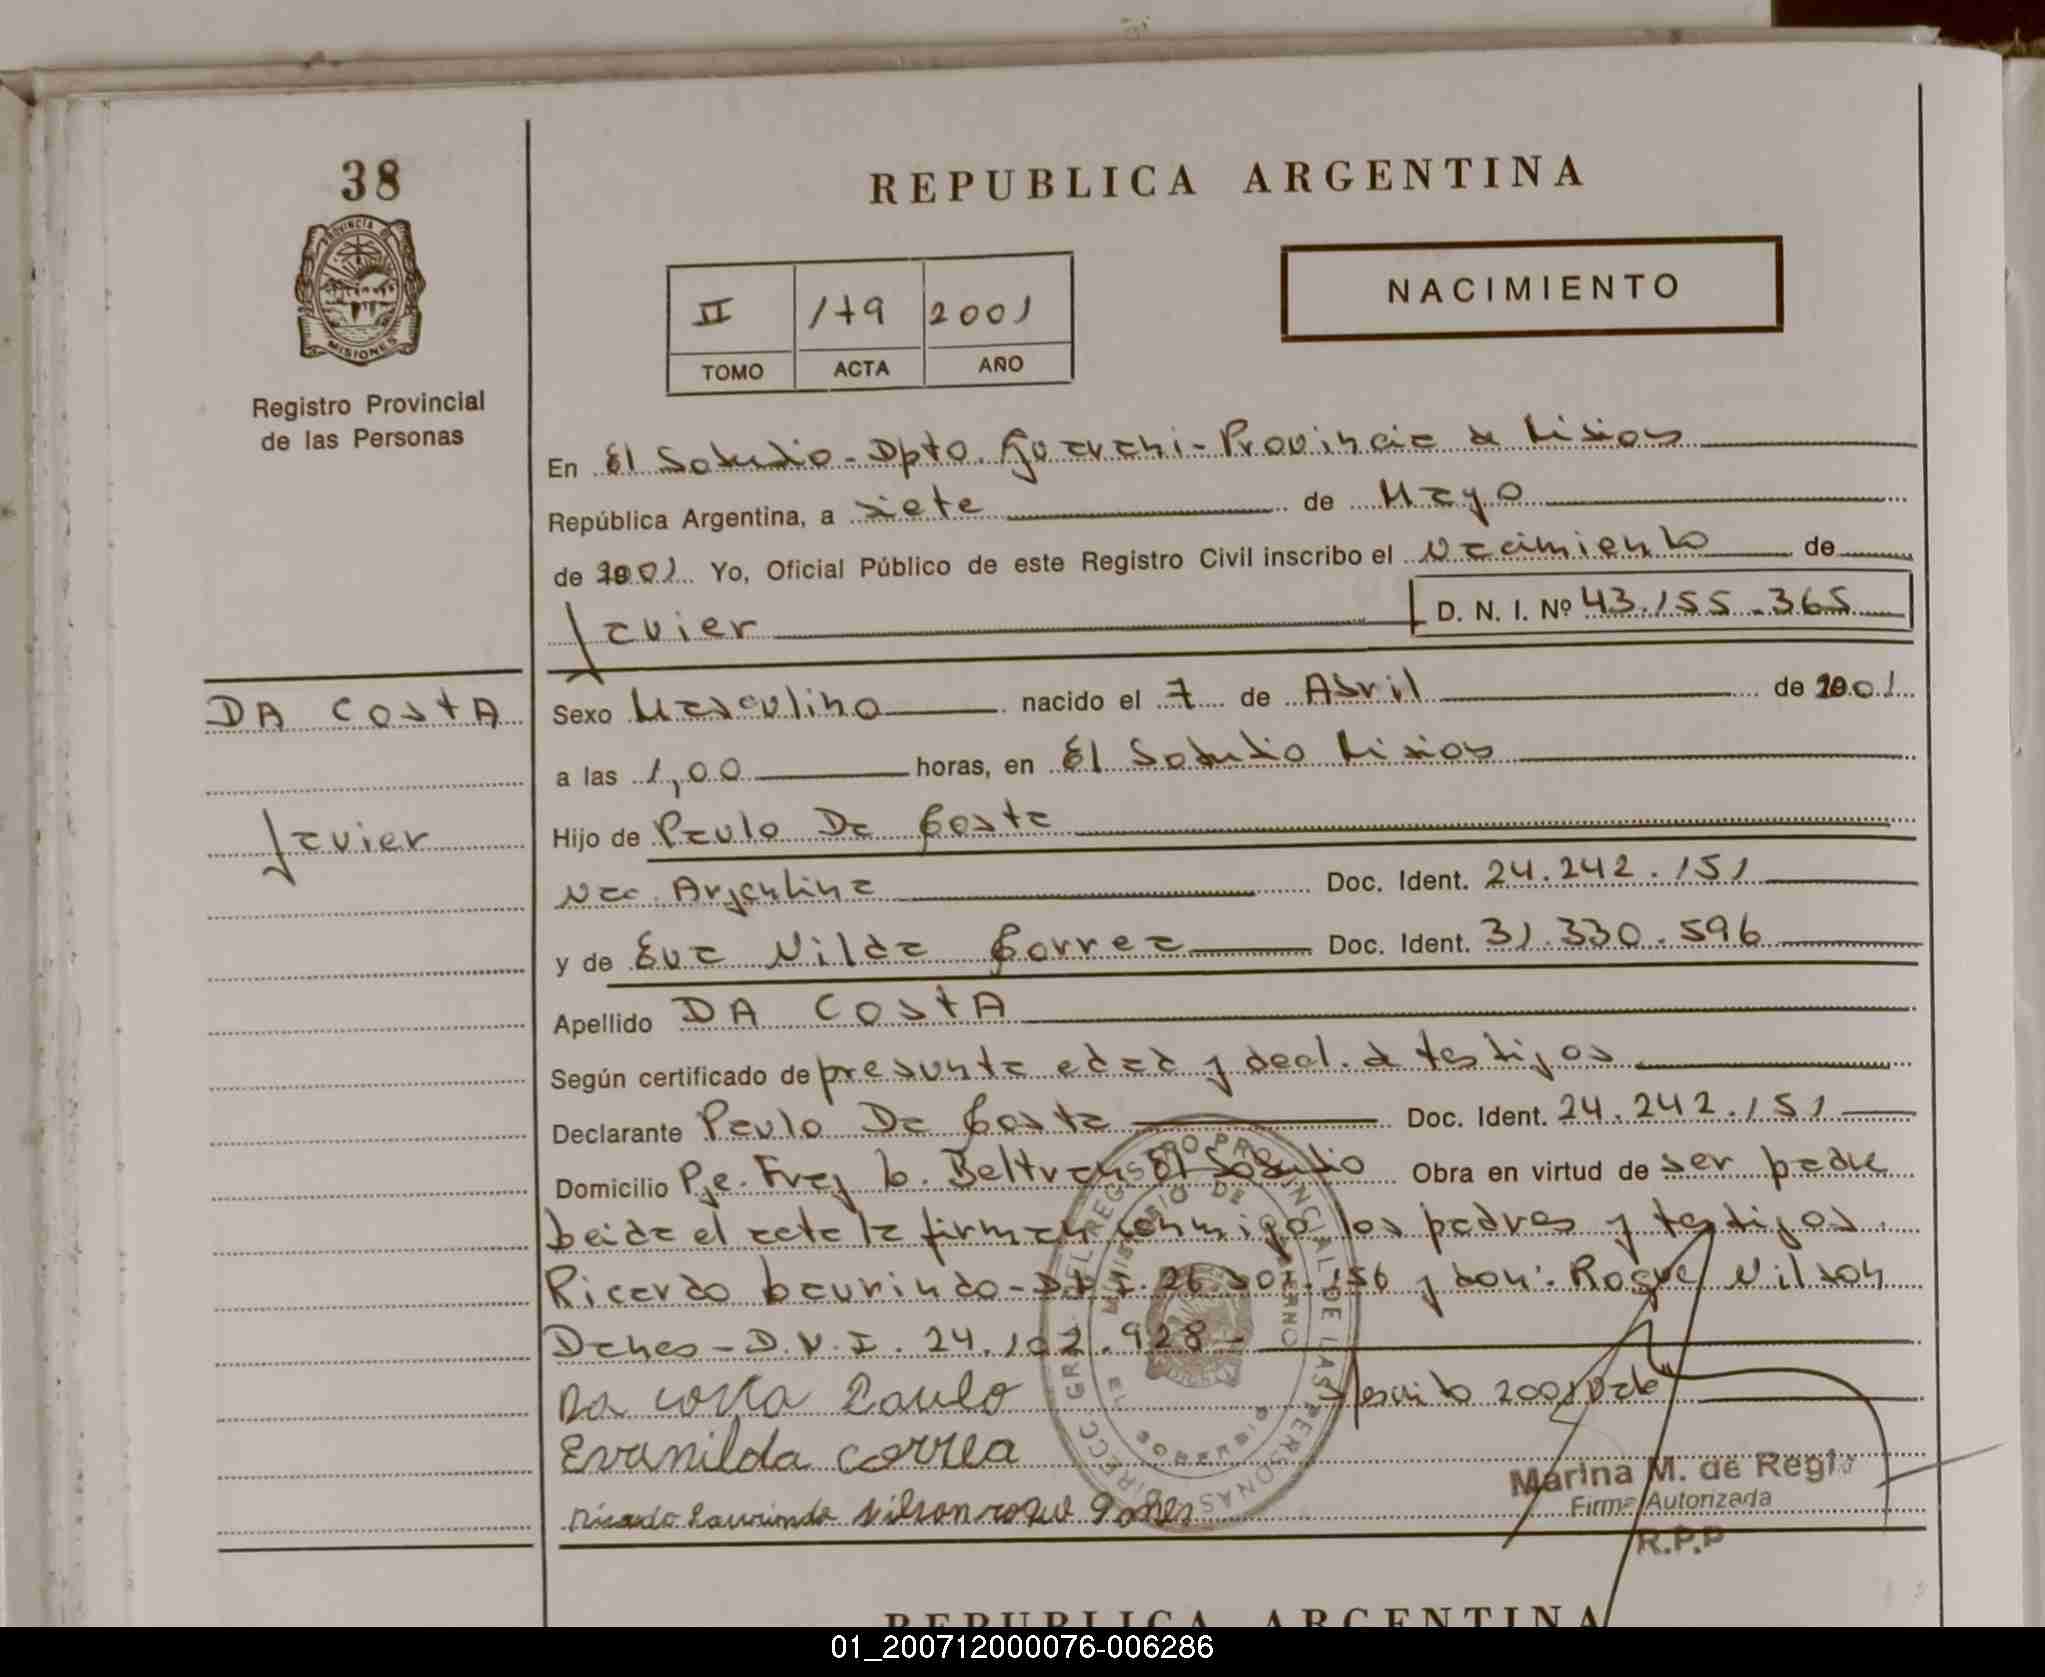 38
REPUBLICA ARGENTINA
PROVINCIA DE
MISIONES
NACIMIENTO
II 179 2001
TOMO ACTA AÑO
Registro Provincial
de las Personas
En El Soberbio - Dpto. Guarani - Provincia de Misiones
República Argentina, a siete de Mayo
de 2001 Yo, Oficial Público de este Registro Civil inscribo el nacimiento de
Javier D. N. I. Nº 43.155.365
DA COSTA
Sexo Masculino nacido el 7 de Abril de 2001
a las 1,00 horas, en El Soberbio Misiones
Javier
Hijo de Paulo Da Costa
Nac. Argentina Doc. Ident. 24.242.151
y de Eva Nilda Correa Doc. Ident. 31.330.596
Apellido DA COSTA
Según certificado de presunta edad y decl. de testigos
Declarante Paulo Da Costa Doc. Ident. 24.242.151
Domicilio Pje. Fray L. Beltran El Soberbio Obra en virtud de ser padre
Leida el acta la firman conmigo los padres y testigos
Ricardo Laurindo - D.N.I. 26 156 y don: Roque Nilson
D.N.I. 24.102.928 -
Da Costa Paulo 2001 Vale
Evanilda Correa
Ricardo Laurindo Nilson roque
Marina M. de Regi
Firma Autorizada
R.P.P
REPUBLICA ARGENTINA
01_200712000076-006286